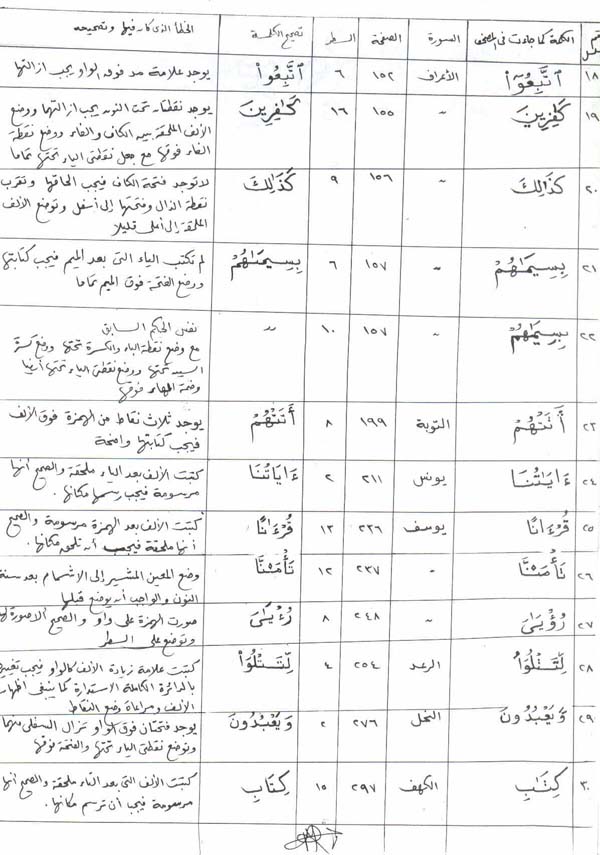 رقم مسلسل | الكلمة كما جاءت فى المصحف | السورة | الصفحة | السطر | تصحيح الكلمة | الخطأ الذى كان فيها وتصحيحه
١٨ | ٱتَّبِعُوٓاْ | الأعراف | ١٥٢ | ٦ | ٱتَّبِعُواْ | يوجد علامة مد فوق الواو يجب ازالتها
١٩ | كَٰفِرِينَ | " | ١٥٥ | ١٦ | كَٰفِرِينَ | يوجد نقطتان تحت النون يجب ازالتها ووضع
الألف الملحقة بين الكاف والفاء ووضع نقطة
الفاء فوقها مع جعل نقطتى الياء تحتها تماما
٢٠ | كذَٰلِكَ | " | ١٥٦ | ٩ | كَذَٰلِكَ | لا توجد فتحة الكاف فيجب الحاقها وتقرب
نقطة الذال وفتحتها إلى أسفل وتوضع الألف
الملحقة إلى أعلى قليلا
٢١ | بِسِيمَٰهُمْ | " | ١٥٧ | ٦ | بِسِيمَىٰهُمْ | لم تكتب الياء التى بعد الميم فيجب كتابتها
ووضع الفتحة فوق الميم تماما
٢٢ | بِسِيمَٰهُمْ | " | ١٥٧ | ١٠ | " | نفس الحكم السابق
مع وضع نقطة الباء والكسرة تحتها ووضع كسرة
السين تحتها ووضع نقطتى الياء تحتها أيضا
وضمة الهاء فوقها
٢٣ | أَتَتْهُمْ | التوبة | ١٩٩ | ٨ | أَتَتْهُمْ | يوجد ثلاث نقاط من الهمزة فوق الألف
فيجب كتابتها واضحة
٢٤ | ءَايَٰتُنَا | يونس | ٢١١ | ٢ | ءَايَاتُنَا | كتبت الألف بعد الياء ملحقة والصحيح أنها
مرسومة فيجب رسمها مكانها.
٢٥ | قُرْءَانًا | يوسف | ٢٣٦ | ١٣ | قُرْءَٰنًا | كتبت الألف بعد الهمزة مرسومة والصحيح
أنها ملحقة فيجب أن تلحق مكانها.
٢٦ | تَأْمَ۫نَّا | " | ٢٣٧ | ١٢ | تَأْمَ۫نَّا | وضع المعين المشير إلى الاشمام بعد سنة
النون والواجب أن يوضع قبلها
٢٧ | رُؤْيَٰىَ | " | ٢٤٨ | ٨ | رُءْيَٰىَ | صورت الهمزة على واو والصحيح ألا صورة لها
وتوضع على السطر
٢٨ | لِّتَتْلُوَاْ | الرعد | ٢٥٤ | ٤ | لِّتَتْلُوَاْ | كتبت علامة زيادة الألف كالواو فيجب تغييرها
بالدائرة الكاملة الاستدارة كما ينبغى اظهار
الألف ومراعاة وضع النقاط
٢٩ | وَيَعْبُدُونَ | النحل | ٢٧٦ | ٢ | وَيَعْبُدُونَ | يوجد فتحتان فوق الواو تزال السفلى منها
وتوضع نقطتى الياء تحتها والفتحة فوقها
٣٠ | كِتَٰبِ | الكهف | ٢٩٧ | ١٥ | كِتَابِ | كتبت الألف التى بعد التاء ملحقة والصحيح أنها
مرسومة فيجب أن ترسم مكانها.